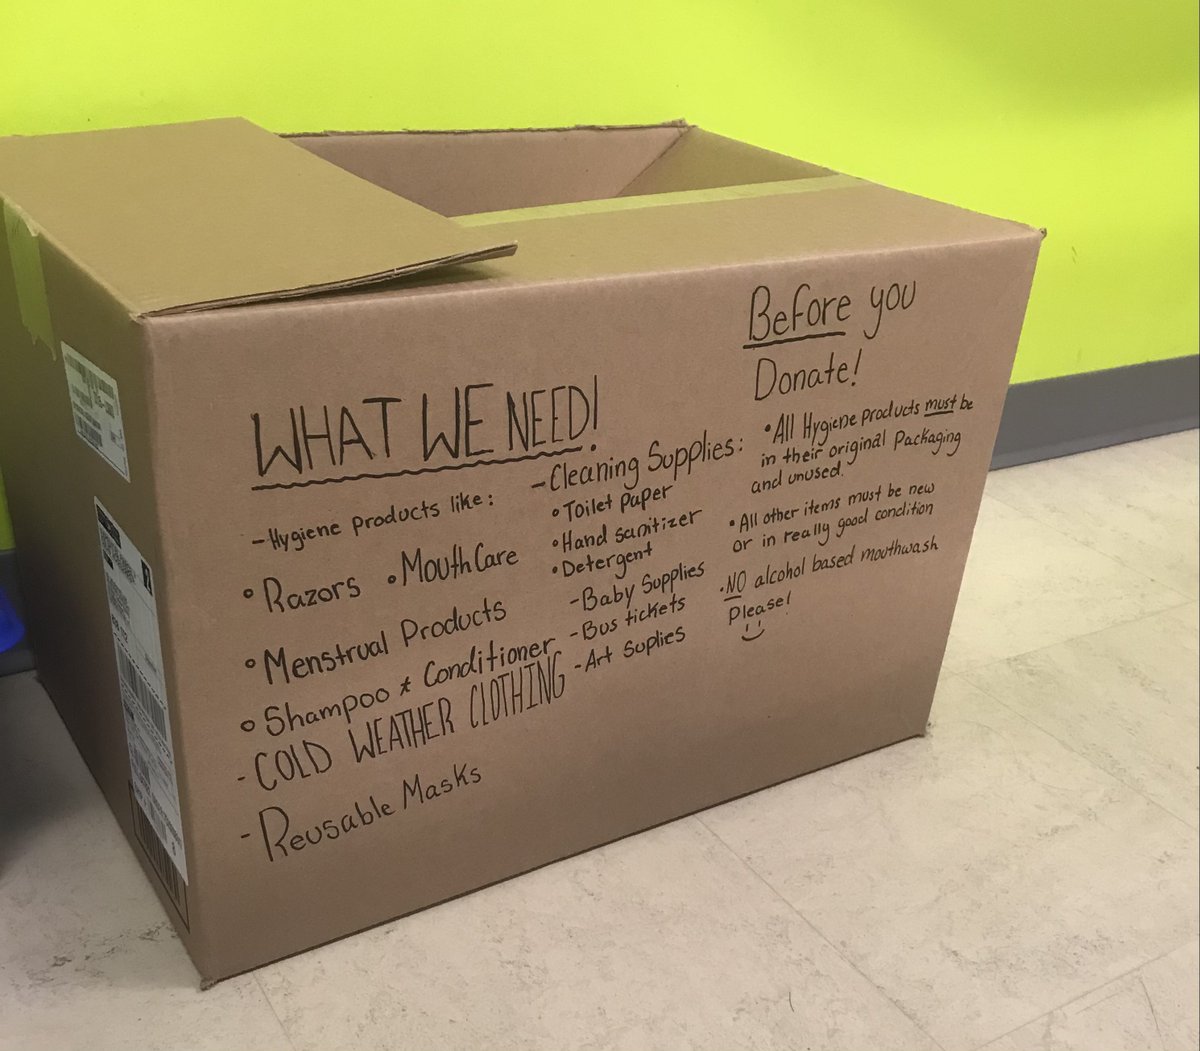 WHAT WE NEED!
-Hygiene products like:
• Razors • Mouth Care
• Menstrual Products
• Shampoo & Conditioner
- COLD WEATHER CLOTHING
- Reusable Masks
-Cleaning Supplies:
• Toilet Paper
• Hand sanitizer
• Detergent
-Baby Supplies
-Bus tickets
-Art Suplies
Before you
Donate!
• All Hygiene products must be
in their original Packaging
and unused.
• All other items must be new
or in really good condition
• NO alcohol based mouthwash
Please!